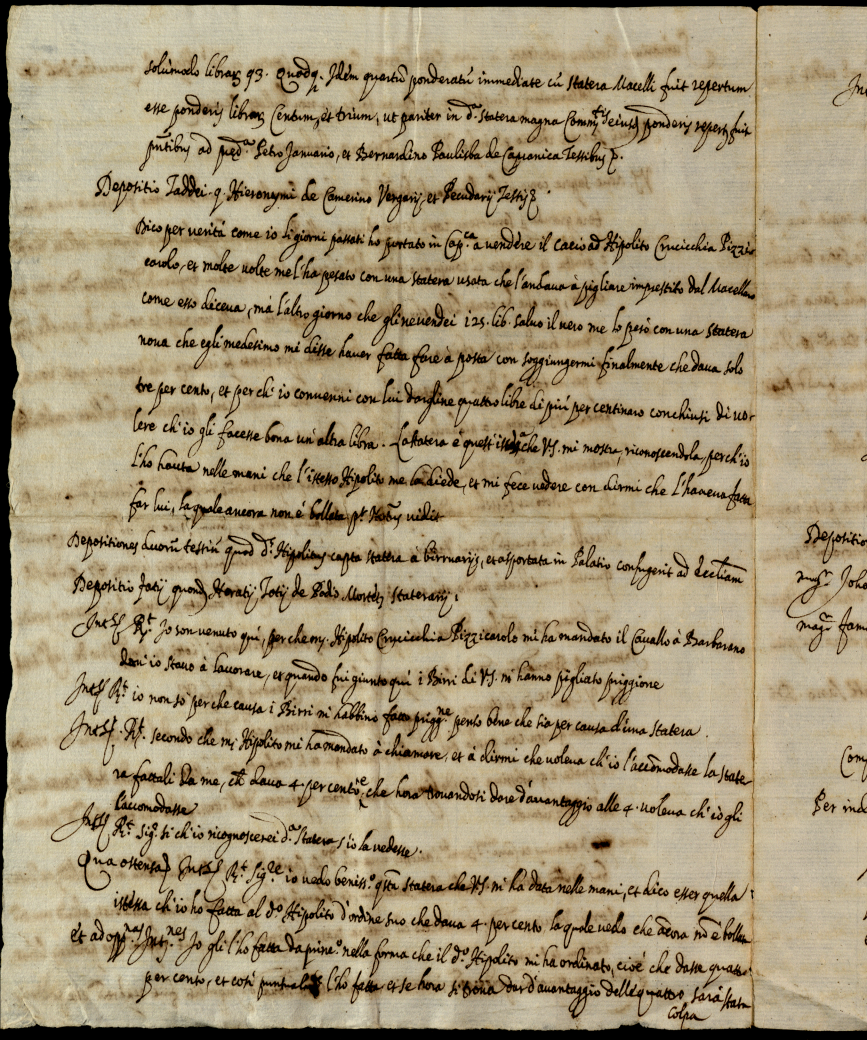 solūmodo librarȝ 93. Quodq. Idēm quartū ponderatū immediate cū statera Macelli fuit repertum
esse ponderis librarȝ Centum, et trium, ut pariter in dᵃ. statera magna Comm.ᵗⁱˢ eiusd ponderis repert. fuit
pn̄tibus ad pred.ᵃ Petro Januario, et Bernardino Paulisba de Capranica Testibus &.
Depositio Taddei q. Hieronymi de Camerino Vergarij, et Pecudarij Testis &.
Dico per verità come io li giorni passati hò portato in Cap.ᶜᵃ à vendere il cacio ad Hipolito Crucicchia Pizzi-
carolo, et molte volte me l'hà pesato con una statera usata che l'andava à pigliare imprestito dal Macellaro
come esso diceva, mà l'altro giorno che gli ne vendei 125. lib. salvo il vero me lo pesò con una statera
nova che egli medesimo mi disse haver fatta fare à posta con soggiungermi finalmente che dava solo
tre per cento, et perch' io convenni con lui dargline quattro libre di più per centinaro conchiusi di vo-
lere ch'io gli facesse bona un' altra libra. La statera è quest' istessa che V.S. mi mostra, riconoscendola, perch'io
l'ho hauta nelle mani che l'istesso Hipolito me la diede, et mi fece vedere con dirmi che l'haveva fatta
far lui, la quale ancora non è bollata pt. Not.ˢ vidit
Depositiones duorū testiū quod dˢ. Hipolitus capta statera à birruarijs, et asportata in Palatio confugerit ad Ecclīam
Depositio Jotij quond Horatij Jotij de Podio Mortēs. staterarij.
Int.ˢ R.ᵗ Io son venuto quì, perche m. Hipolito Crucicchia Pizzicarolo mi hà mandato il Cavallo à Barbarano
dove io stavo à lavorare, et quando fui giunto quì i Birri di V.S. mi hanno pigliato priggione
Int.ˢ R.ᵗ io non sò per che causa i Birri mi habbino fatto prigg.ⁿᵉ penso bene che sia per causa d'una statera.
Int.ˢ. R.ᵗ. secondo che m. Hipolito mi hà mandato à chiamare, et à dirmi che voleva ch'io l'accōmodasse la state-
ra fattali da me, ch' dava 4. per cento, e che hora trovandosi dare d'avantaggio alle 4. voleva ch' io gli
l'accomodasse
Int.ˢ R.ᵗ sig.ʳ si ch'io ricognoscerei d.ᵃ statera s'io la vedesse.
Qua ostensa Int.ˢ R.ᵗ sig.ʳᵉ io vedo beniss.º qst̄a statera che V.S. mi ha data nelle mani, et dico esser quella
istessa ch'io ho fatta al d.º Hipolito d'ordine suo che dava 4. per cento la quale vedo che ācora nō è bollata
et ad opp.ⁿᵃˢ Int.ⁿᵉˢ Io gli l'ho fatta da princ.º nella forma che il d.º Hipolito mi hà ordinato, cioè che dasse quattro
per cento, et così l'ho fatta et se hora si trova dar d'avantaggio delle quattro sarà stata
colpa